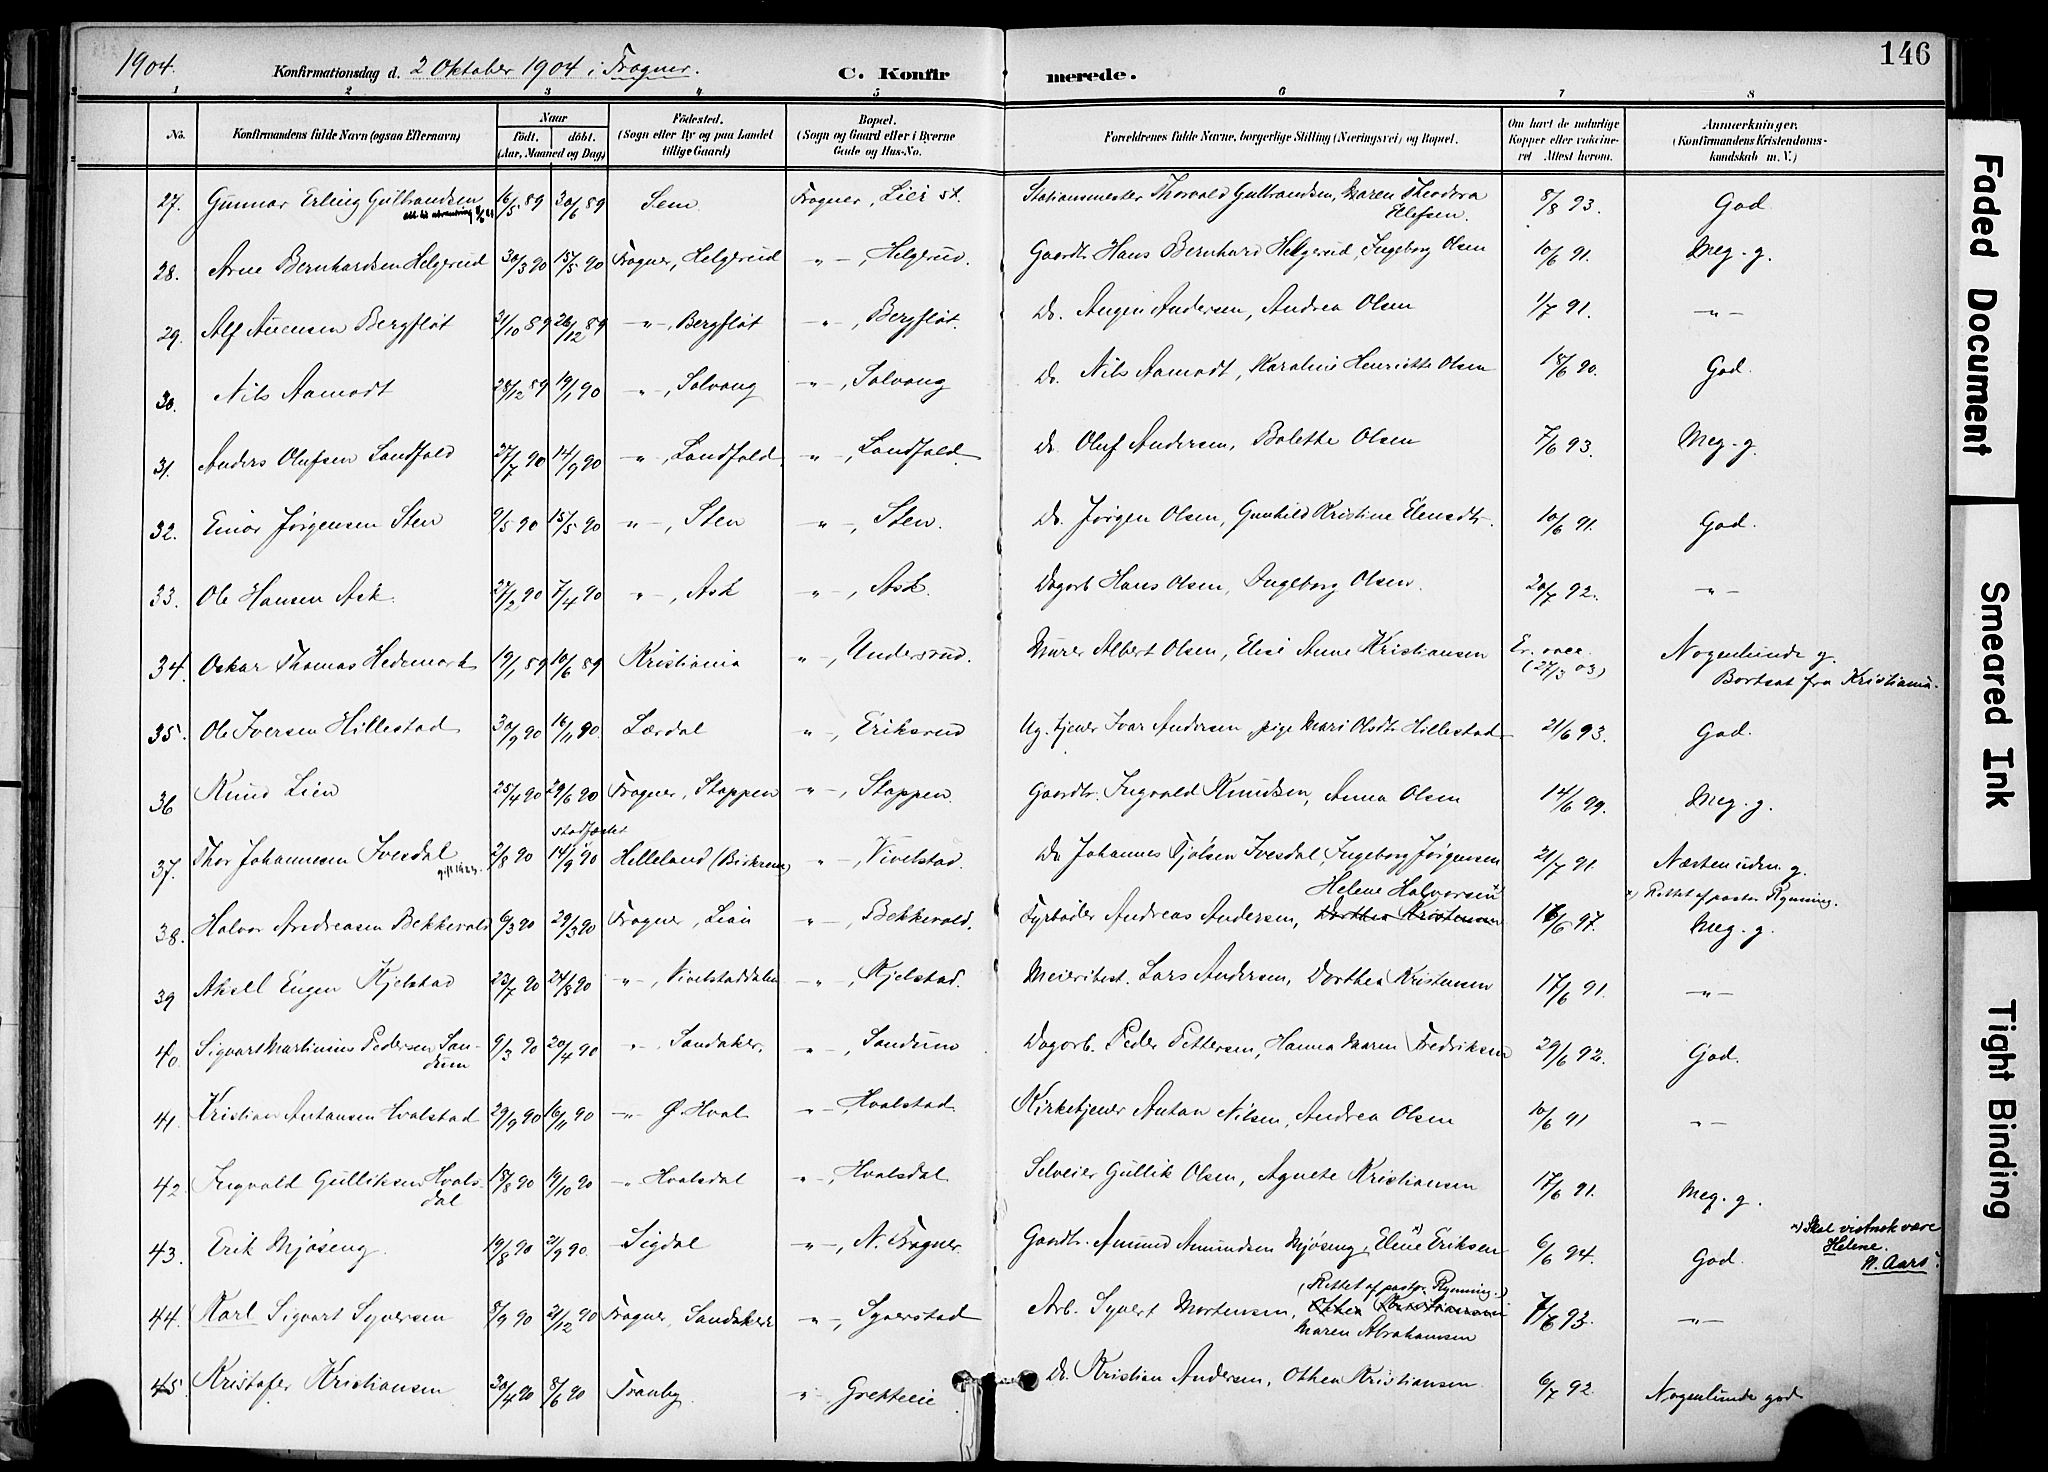 1904. Konfirmationsdag d. 2 Oktober 1904 i Frogner. C. Konfir merede. 146
1 2 3 4 5 6 7 8
No. Konfirmandens fulde Navn (ogsaa Efternavn) Naar født. døbt. (Aar, Maaned og Dag) Fødested. (Sogn eller By og paa Landet tillige Gaard) Bopæl. (Sogn og Gaard eller i Byerne Gade og Hus-No. Forældrenes fulde Navne, borgerlige Stilling (Næringsvei) og Bopæl. Om havt de naturlige Kopper eller vakcineret. Attest herom. Anmærkninger. (Konfirmandens Kristendomskundskab m. V.)
27. Gunnar Erling Gulbrandsen 16/5 89 30/6 89 Sem Frogner, Lier st. Stationsmester Thorvald Gulbrandsen, Maren Theodora Elefsen. 8/8 93. God.
28. Arne Bernhardsen Helgerud 30/3 90 15/5 90 Frogner, Helgerud -"-, Helgerud. Gaardbr. Hans Bernhard Helgerud, Ingeborg Olsen 10/6 91. Meg. g.
29. Alf Augensen Bergfløt 31/10 89 26/12 89 -"-, Bergfløt -"-, Bergfløt. Do. Augen Andersen, Andrea Olsen 1/7 91. -"-
30. Nils Aamodt 28/12 89 19/1 90 -"-, Solvang -"-, Solvang Do. Nils Aamodt, Karoline Henriette Olsen 18/6 90. God.
31. Anders Olufsen Landfald 27/7 90 14/9 90 -"-, Landfald -"-, Landfald. Do. Oluf Andersen, Bolette Olsen 7/6 93. Meg. g.
32. Einar Jørgensen Sten 9/5 90 15/5 90 -"-, Sten -"-, Sten. Do. Jørgen Olsen, Gunhild Kristine Elensdtr. 10/6 91. God.
33. Ole Hansen Ask. 27/2 90 7/4 90 -"-, Ask -"-, Ask. Dagarb. Hans Olsen, Ingeborg Olsen. 20/7 92. -"-
34. Oskar Thomas Hedemark 19/1 89 10/6 89 Kristiania -"-, Undersrud. Murer Albert Olsen, Elise Anne Kristiansen Er. vacc. (27/3 03) Nogenlunde g.
Bortsat fra Kristiania.
35. Ole Iversen Hillestad 30/9 90 16/11 90. Lærdal -"-, Eriksrud Ug. tjener Ivar Andersen, pige Mari Olsdtr Hillestad 21/6 93. God.
36 Knud Lien 25/4 90 29/6 90 Frogner, Stoppen -"-, Stoppen. Gaardbr. Ingvald Knudsen, Anna Olsen 14/6 99. Meg. g.
stadfæstet
37. Thor Johannesen Ivesdal 2/8 90 14/9 90 Helleland (Birkrem) -"-, Vivelstad. Do Johannes Tjølsen Ivesdal, Ingeborg Jørgensen 21/7 91. Næsten uden g.
gift 1923.
Helene Halvorsen x) x) Rettet af pastor Rynning.
38. Halvor Andreasen Bekkevold 6/3 90 29/3 90 Frogner, Lian -"-, Bekkevold. Fyrbøder Andreas Andersen, Dorthea Kristensen 16/6 97. Meg. g.
39 Aksel Eugen Kjelstad 23/7 90 24/8 90 -"-, Vivelstaddalen -"-, Kjelstad. Meieribest. Lars Andersen, Dorthea Kristensen 17/6 91. -"-
40. Sigvart Martinius Pedersen Sandum 9/3 90 20/4 90 -"-, Sandaker. -"-, Sandum Dagarb. Peder Pettersen, Hanna Maren Fredriksen 29/6 92. God.
41. Kristian Antonsen Hvalstad 29/9 90 16/11 90 -"- Ø. Hval -"-, Hvalstad Kirketjener Anton Nilsen, Andrea Olsen 10/6 91 -"-
42. Ingvald Gulliksen Hvalsdal 18/8 90 19/10 90 -"- Hvalsdal -"-, Hvalsdal Selveier Gullik Olsen, Agnete Kristiansen 17/6 91. Meg. g.
43. Erik Mjøseng. 19/8 90 21/9 90. Sigdal -"-, N. Frogner. Gaardbr. Amund Amundsen Mjøseng, Eline x) Eriksen 6/6 94. God. x) Skal vistnok være Helene. W. Aars.
(Rettet af pastor Rynning.)
44. Karl Sigvart Syversen 8/9 90 21/12 90 Frogner, Sandaker -"-, Syverstad Arb. Syvert Mortensen, Othea Kristiansen 7/6 93. -"-
Maren Abrahamsen
45 Kristofer Kristiansen 30/4 90 8/6 90 Tranby. -"- Do. Kristian Andersen, Othea Kristiansen. 6/7 92. Nogenlunde god
Faded Document
Smeared Ink
Tight Binding